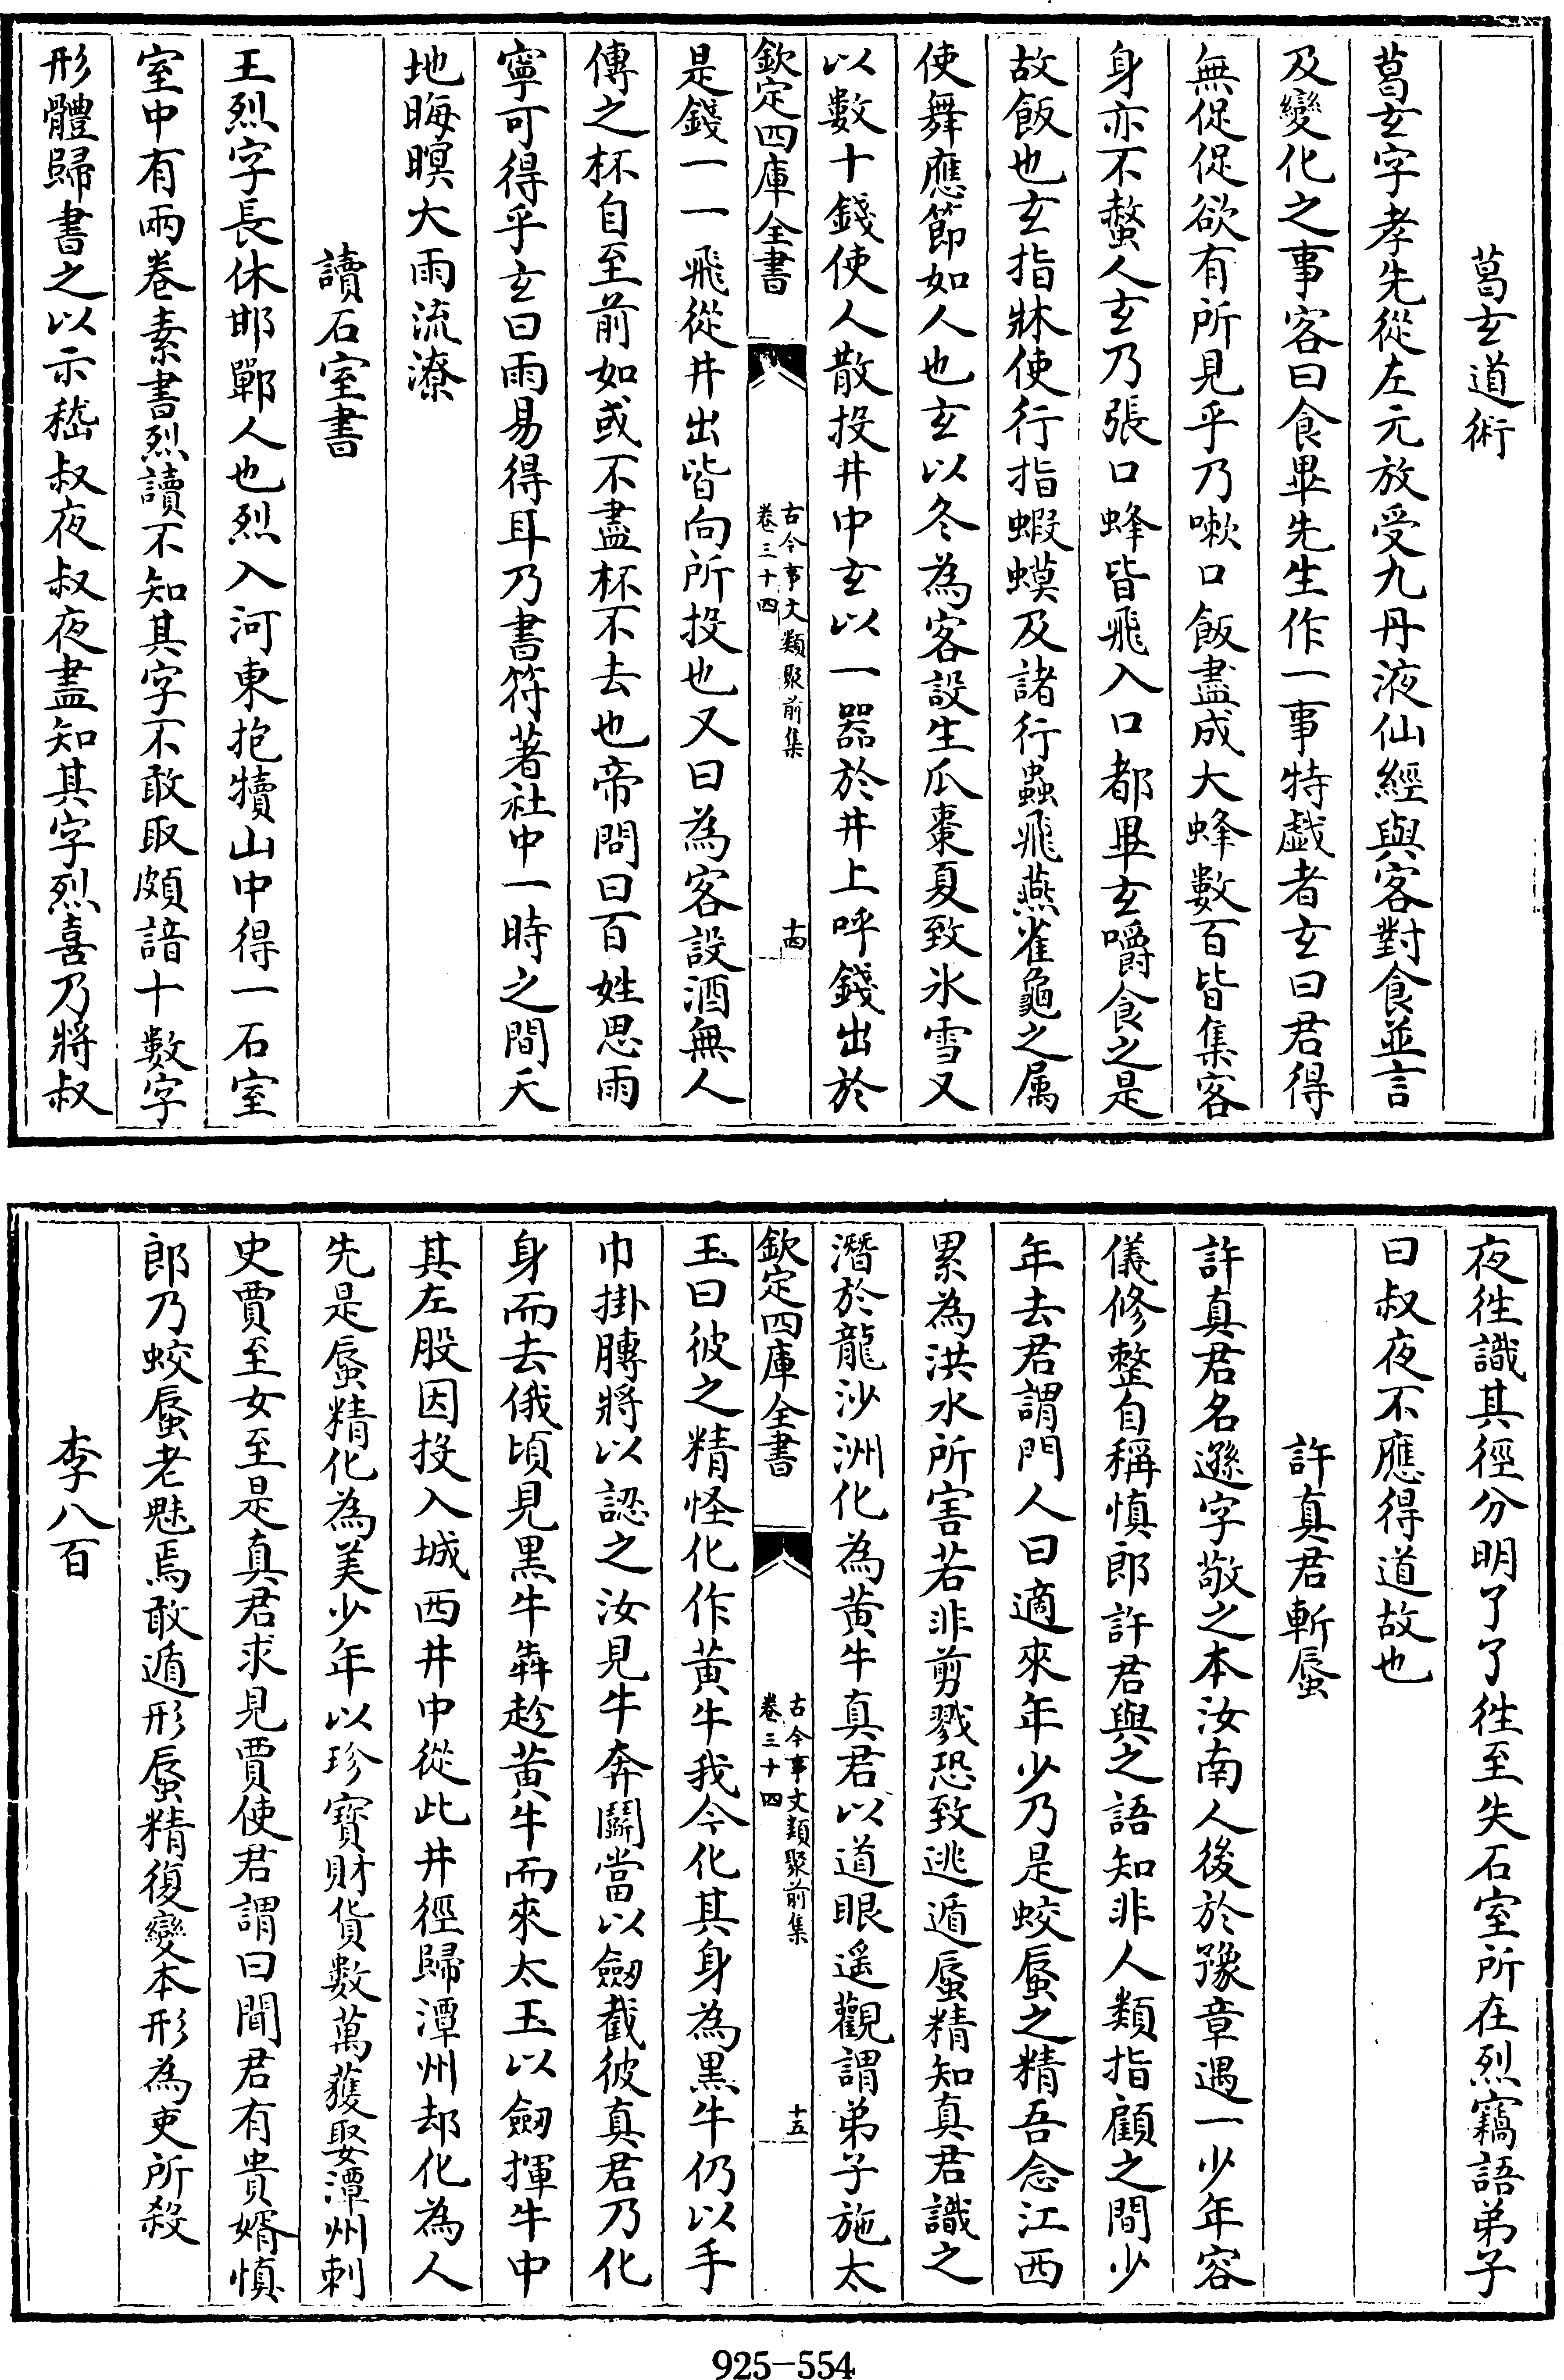 葛玄道術
葛玄字孝先從左元放受九丹液仙經與客對食並言
及變化之事客曰食畢先生作一事特戱者玄曰君得
無促促欲有所見乎乃嗽口飯盡成大蜂數百皆集客
身亦不螫人玄乃張口蜂皆飛入口都畢玄嚼食之是
故飯也玄指牀使行指蝦蟆及諸行蟲飛燕雀龜之属
使舞應節如人也玄以冬為客設生瓜棗夏致氷雪又
以數十錢使人散投井中玄以一器於井上呼錢出於
欽定四庫全書
古今事文類聚前集
卷三十四
十四
是錢一一飛從井出皆向所投也又曰為客設酒無人
傳之杯自至前如或不盡杯不去也帝問曰百姓思雨
寧可得乎玄曰雨易得耳乃書符著社中一時之間天
地晦暝大雨流潦
讀石室書
王烈字長休邯鄲人也烈入河東抱犢山中得一石室
室中有兩卷素書烈讀不知其字不敢取頗諳十數字
形體歸書之以示嵇叔夜叔夜盡知其字烈喜乃將叔
夜徃識其徑分明了了徃至失石室所在烈竊語弟子
曰叔夜不應得道故也
許真君斬蜃
許真君名遜字敬之本汝南人後於豫章遇一少年容
儀修整自稱慎郎許君與之語知非人類指顧之間少
年去君謂門人曰適來年少乃是蛟蜃之精吾念江西
累為洪水所害若非剪戮恐致逃遁蜃精知真君識之
潛於龍沙洲化為黄牛真君以道眼遥觀謂弟子施太
欽定四庫全書
古今事文類聚前集
卷三十四
十五
玉曰彼之精怪化作黄牛我今化其身為黒牛仍以手
巾掛膊將以認之汝見牛奔鬭當以劒截彼真君乃化
身而去俄頃見黒牛犇趁黄牛而來太玉以劒揮牛中
其左股因投入城西井中從此井徑歸潭州却化為人
先是蜃精化為美少年以珍寳財貨數萬獲娶潭州刺
史賈至女至是真君求見賈使君謂曰聞君有貴婿慎
郎乃蛟蜃老魅焉敢遁形蜃精復變本形為吏所殺
李八百
925-554